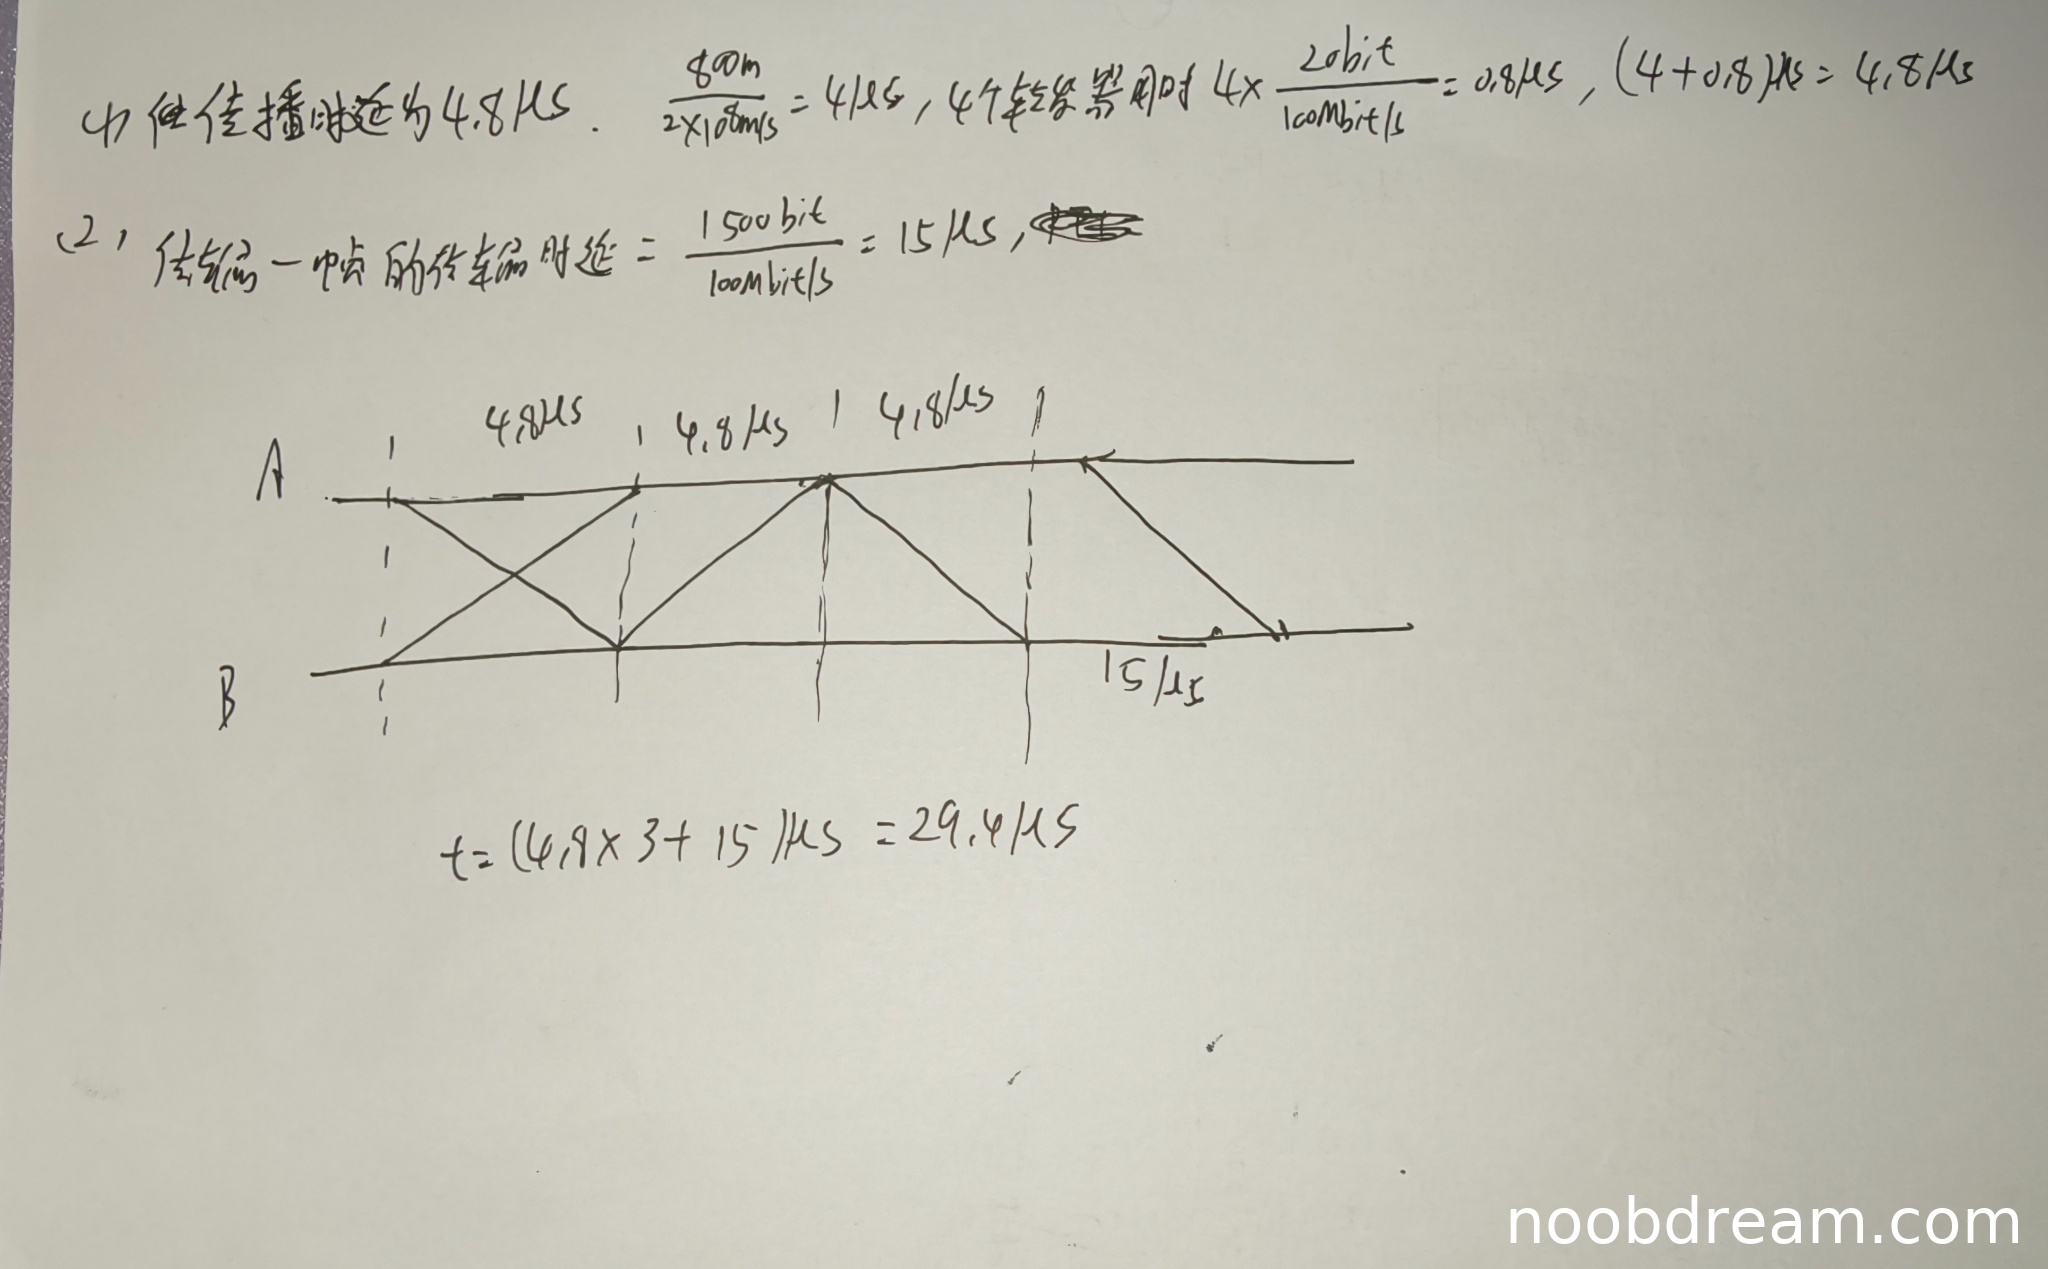 (1) 传播时延为4.8μs. 800m / 2×10⁸m/s = 4μs, 4个转发器用时 4× 20bit / 100Mbit/s = 0.8μs, (4+0.8)μs = 4.8μs
(2) 传输一帧的传输时延 = 1500bit / 100Mbit/s = 15μs,
4.8μs 4.8μs 4.8μs
A
B
15μs
t=(4.8×3+15)μs =29.4μs
noobdream.com